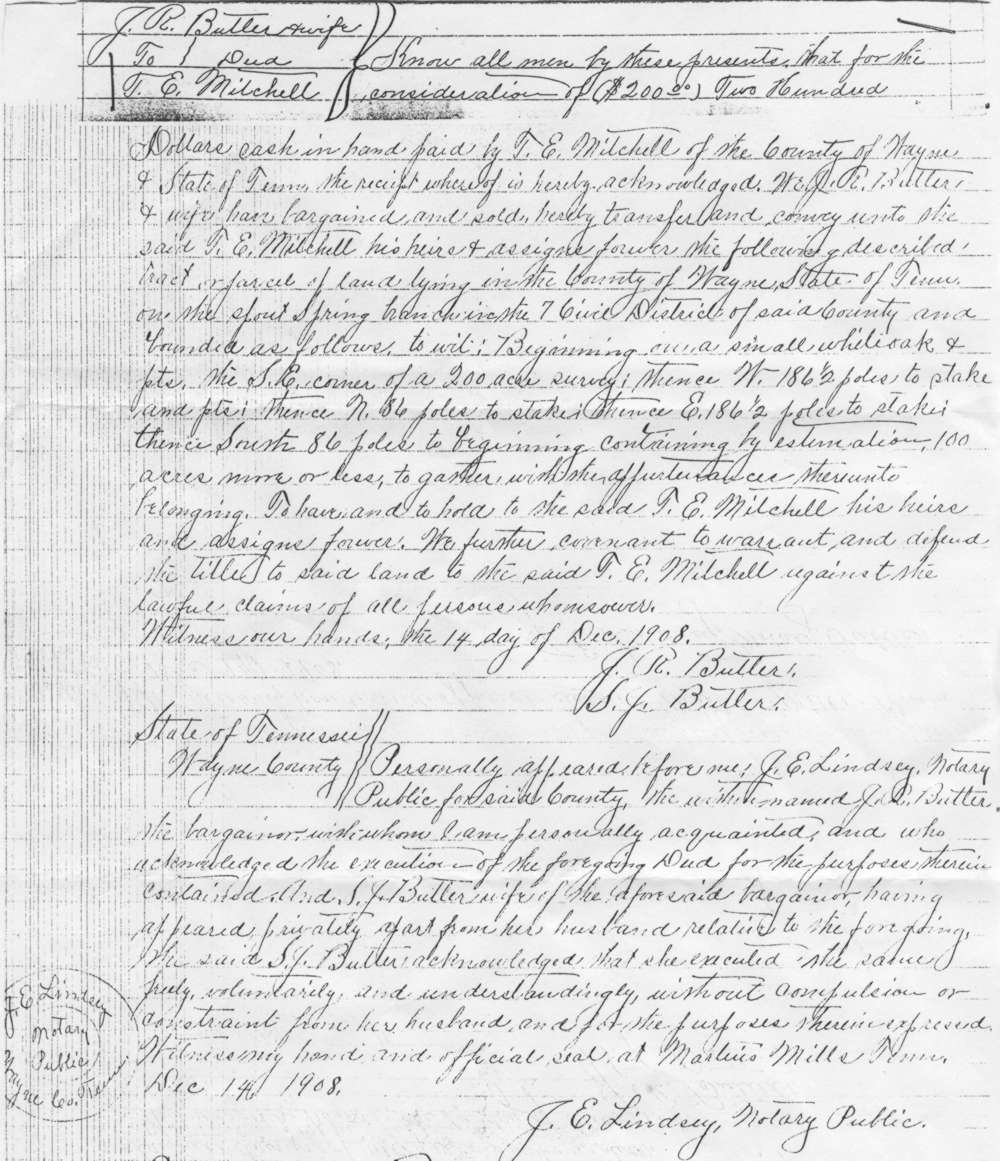 J. R. Butler & wife
To } Deed
T. E. Mitchell
Know all men by these presents, that for the
consideration of ($200.00) Two Hundred
Dollars cash in hand paid by T. E. Mitchell of the County of Wayne
& State of Tenn, the receipt whereof is hereby acknowledged. We J. R. Butler
& wife have bargained and sold, hereby transfer and convey unto the
said T. E. Mitchell his heirs & assigns forever the following described
tract or parcel of land lying in the County of Wayne, State of Tenn.
on the Spout Spring branch in the 7 Civil District of said County and
bounded as follows, to wit: Beginning on a small whiteoak &
pts. the S.E. corner of a 200 acre survey; thence W. 186½ poles to stake
and pts; thence N. 86 poles to stake; thence E. 186½ poles to stake;
thence South 86 poles to beginning containing by estimation, 100
acres more or less, to gather with the appurtenances thereunto
belonging. To have and to hold to the said T. E. Mitchell his heirs
and assigns forever. We further covenant to warrant and defend
the title to said land to the said T. E. Mitchell against the
lawful claims of all persons whomsoever.
Witness our hands, the 14 day of Dec. 1908.
J. R. Butler.
S. J. Butler.
State of Tennessee
Wayne County
Personally appeared before me, J. E. Lindsey, Notary
Public for said County, the within named J. R. Butler
the bargainor, with whom I am personally acquainted, and who
acknowledged the execution of the foregoing Deed for the purposes therein
contained. And S. J. Butler wife of the aforesaid bargainor, having
appeared privately apart from her husband relative to the foregoing,
the said S. J. Butler acknowledged that she executed the same
freely, voluntarily, and understandingly, without compulsion or
constraint from her husband, and for the purposes therein expressed.
Witness my hand and official seal at Martins Mills Tenn.
Dec 14, 1908.
J. E. Lindsey, Notary Public.
J. E. Lindsey
Notary
Public
Wayne Co. Tenn